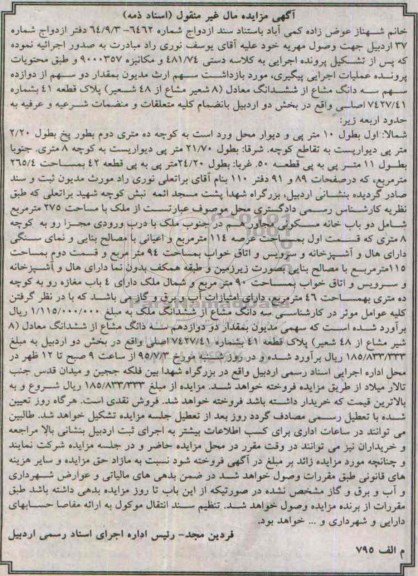 آگهی مزایده مال غیر منقول (اسناد ذمه)
خانم شهناز عوض زاده کمی آباد باستناد سند ازدواج شماره ۶۴۶۲- ۶۴/۹/۳ دفتر ازدواج شماره
۳۷ اردبیل جهت وصول مهریه خود علیه آقای یوسف نوری راد مبادرت به صدور اجرائیه نموده
که پس از تشکیل پرونده اجرایی به کلاسه دستی ۴۸۱/۷۴ و مکانیزه ۹۰۰۰۳۵۷ و طبق محتویات
پرونده عملیات اجرایی پیگیری، مورد بازداشت سهم ارث مدیون بمقدار دو سهم از دوازده
سهم سه دانگ مشاع از ششدانگ معادل (۸ شعیر مشاع از ۴۸ شعیر) پلاک قطعه ۴۱ بشماره
۷۴۲۷/۴۱ اصلی واقع در بخش دو اردبیل بانضمام کلیه متعلقات و منضمات شرعیه و عرفیه به
حدود اربعه زیر:
شمالا: اول بطول ۱۰ متر پی و دیوار محل ورد است به کوچه ده متری دوم بطور پخ بطول ۲/۲۰
متر پی دیواریست به تقاطع کوچه. شرقا: بطول ۲۱/۷۰ متر پی دیواریست به کوچه ۸ متری. جنوبا
بطول ۱۱ متر پی به پی قطعه ۵۰. غربا: بطول ۲۴/۲۰متر پی به پی قطعه ۴۲ بمساحت ۲۶۵/۴
مترمربع، که درصفحات ۸۹ و ۹۱ دفتر ۱۱۰ بنام آقای براتعلی نوری راد مورث مدیون ثبت و سند
صادر گردیده بنشانی اردبیل، بزرگراه شهدا پشت مسجد ائمه نبش کوچه شهید براتعلی که طبق
نظریه کارشناس رسمی دادگستری محل موصوف عبارتست از ملک با مساحت ۲۷۵ مترمربع
شامل دو باب خانه مسکونی مجاور هم در جنوب ملک با درب ورودی مجزا رو به کوچه
۸ متری که قسمت اول بمساحت عرصه ۱۱۴ مترمربع و اعیانی با مصالح بنایی و نمای سنگی
دارای هال و آشپزخانه و سرویس و اتاق خواب بمساحت ۹۴ متر مربع و قسمت دوم بمساحت
۱۱۵مترمربع با مصالح بنایی بصورت زیرزمین و طبقه همکف بدون نما دارای هال و آشپزخانه
و سرویس و اتاق خواب بمساحت ۹۰ متر مربع و شمال ملک دارای ۴ باب مغازه رو به کوچه
ده متری بهمساحت ۴۶ مترمربع، دارای امتیازات آب و برق و گاز می باشد که با در نظر گرفتن
کلیه عوامل موثر در کارشناسی سه دانگ مشاع از ششدانگ ملک به مبلغ ۱/۱۱۵/۰۰۰/۰۰۰ ریال
برآورد شده است که سهمی مدیون بمقدار دو دوازدهم سه دانگ مشاع از ششدانگ معادل (۸
شیر مشاع از ۴۸ شعیر) پلاک قطعه ۴۱ بشماره ۷۴۲۷/۴۱ اصلی واقع در بخش دو اردبیل به مبلغ
۱۸۵/۸۳۳/۳۳۳ ریال برآورد شده و در روز شنبه مورخ ۹۵/۷/۳ از ساعت ۹ صبح تا ۱۲ ظهر در
محل اداره اجرایی اسناد رسمی اردبیل واقع در بزرگراه شهدا بین فلکه ججین و میدان قدس جنب
تالار میلاد از طریق مزایده فروخته خواهد شد. مزایده از مبلغ ۱۸۵/۸۳۳/۳۳۳ ریال شروع و به
بالاترین قیمت که خریدار داشته باشد فروخته خواهد شد. فروش نقدی است. هرگاه روز تعیین
شده با تعطیل رسمی مصادف گردد روز بعد از تعطیل جلسه مزایده تشکیل خواهد شد. طالبین
می توانند در ساعات اداری برای کسب اطلاعات بیشتر به اجرای ثبت اردبیل بنشانی بالا مراجعه
و خریداران نیز می توانند در وقت مقرر در محل مزایده حاضر و در جلسه مزایده شرکت نمایند
و چنانچه مورد مزایده زائد بر مبلغ در آگهی فروخته شود نسبت به مازاد حق مزایده و سایر هزینه
های قانونی طبق مقررات وصول خواهد شد. در ضمن بدهی های مالیاتی و عوارض شهرداری
و آب و برق و گاز مشخص نشده در صورتیکه از این باب تا روز مزایده بدهی داشته باشد طبق
مقررات از برنده مزایده وصول خواهد شد. تنظیم سند انتقال موکول به ارائه مفاصا حسابهای
دارایی و شهرداری و ... خواهد بود.
فردین مجد- رئیس اداره اجرای اسناد رسمی اردبیل
م الف ۷۹۵